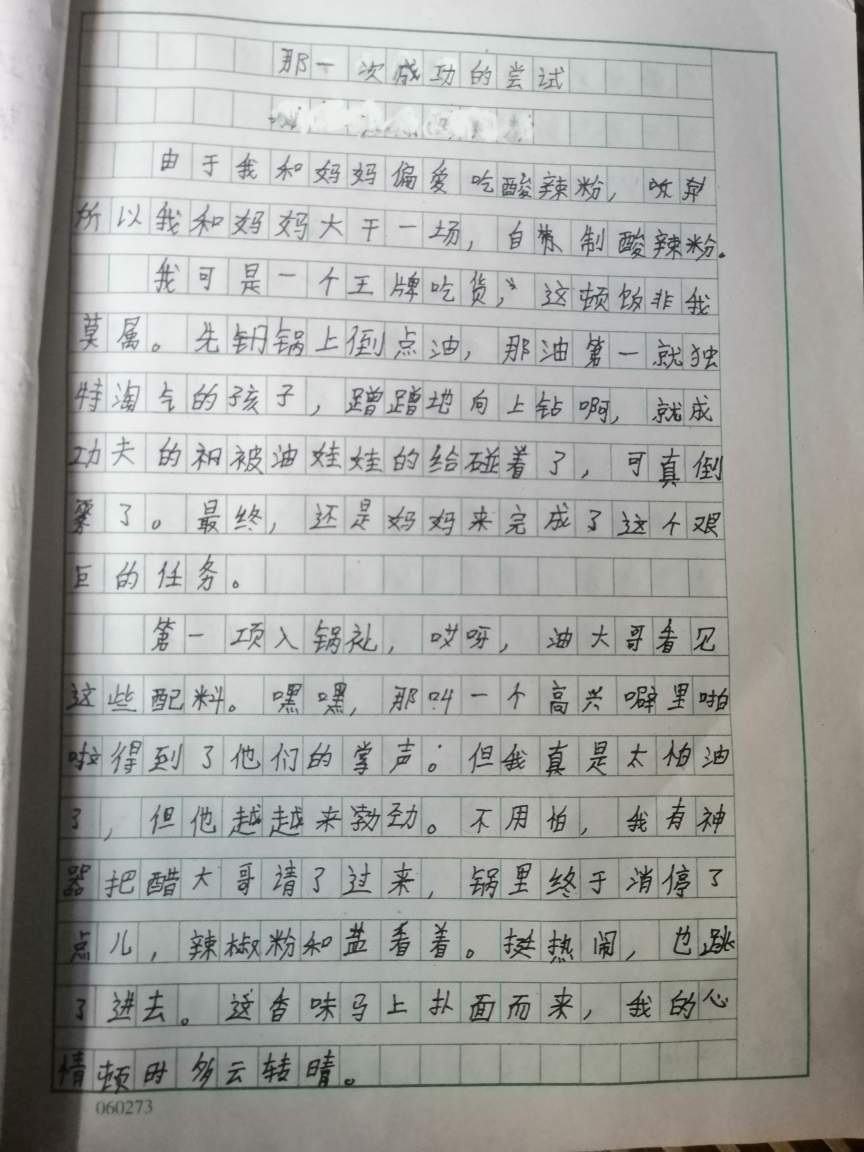 那一次成功的尝试
由于我和妈妈偏爱吃酸辣粉，
所以我和妈妈大干一场，自制酸辣粉。
我可是一个王牌吃货，这顿饭非我
莫属。先锅上倒点油，那油第一就独
特淘气的孩子，蹭蹭地向上钻啊，就成
功夫的被油娃娃的给碰着了，可真倒
了。最终，还是妈妈来完成了这个艰
巨的任务。
第一项入锅，哎呀，油大哥看见
这些配料。嘿嘿，那叫一个高兴噼里啪
啦得到了他们的掌声。但我真是太怕油
了，但他越越来勃劲。不用怕，我有神
器把醋大哥请了过来，锅里终于消停了
点儿，辣椒粉和盐看着。挺热闹，也跳
了进去。这香味马上扑面而来，我的心
情顿时多云转晴。
060273